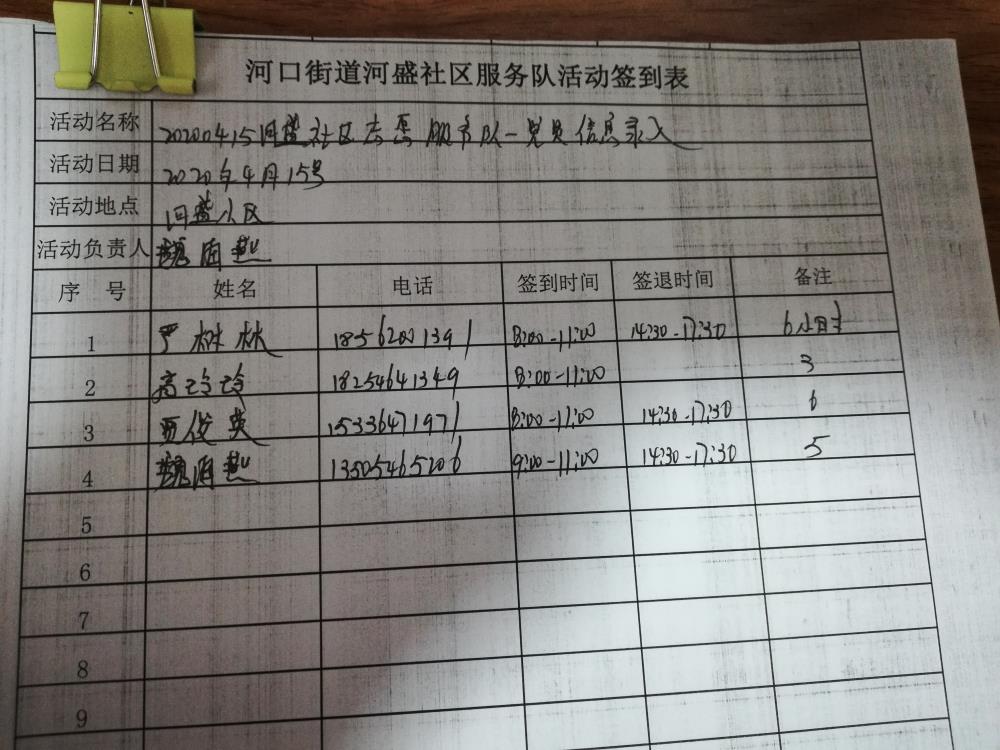 河口街道河盛社区服务队活动签到表
活动名称 20200415河盛社区志愿服务队一党员信息录入
活动日期 2020年4月15号
活动地点 河盛小区
活动负责人
序 号 姓名 电话 签到时间 签退时间 备注
1 严树林 18562001391 8:00-11:00 14:30-17:30 6小时
2 高玲玲 18254641349 8:00-11:00 3
3 贾俊英 15336471971 8:00-11:00 14:30-17:30 6
4 13505465206 9:00-11:00 14:30-17:30 5
5
6
7
8
9